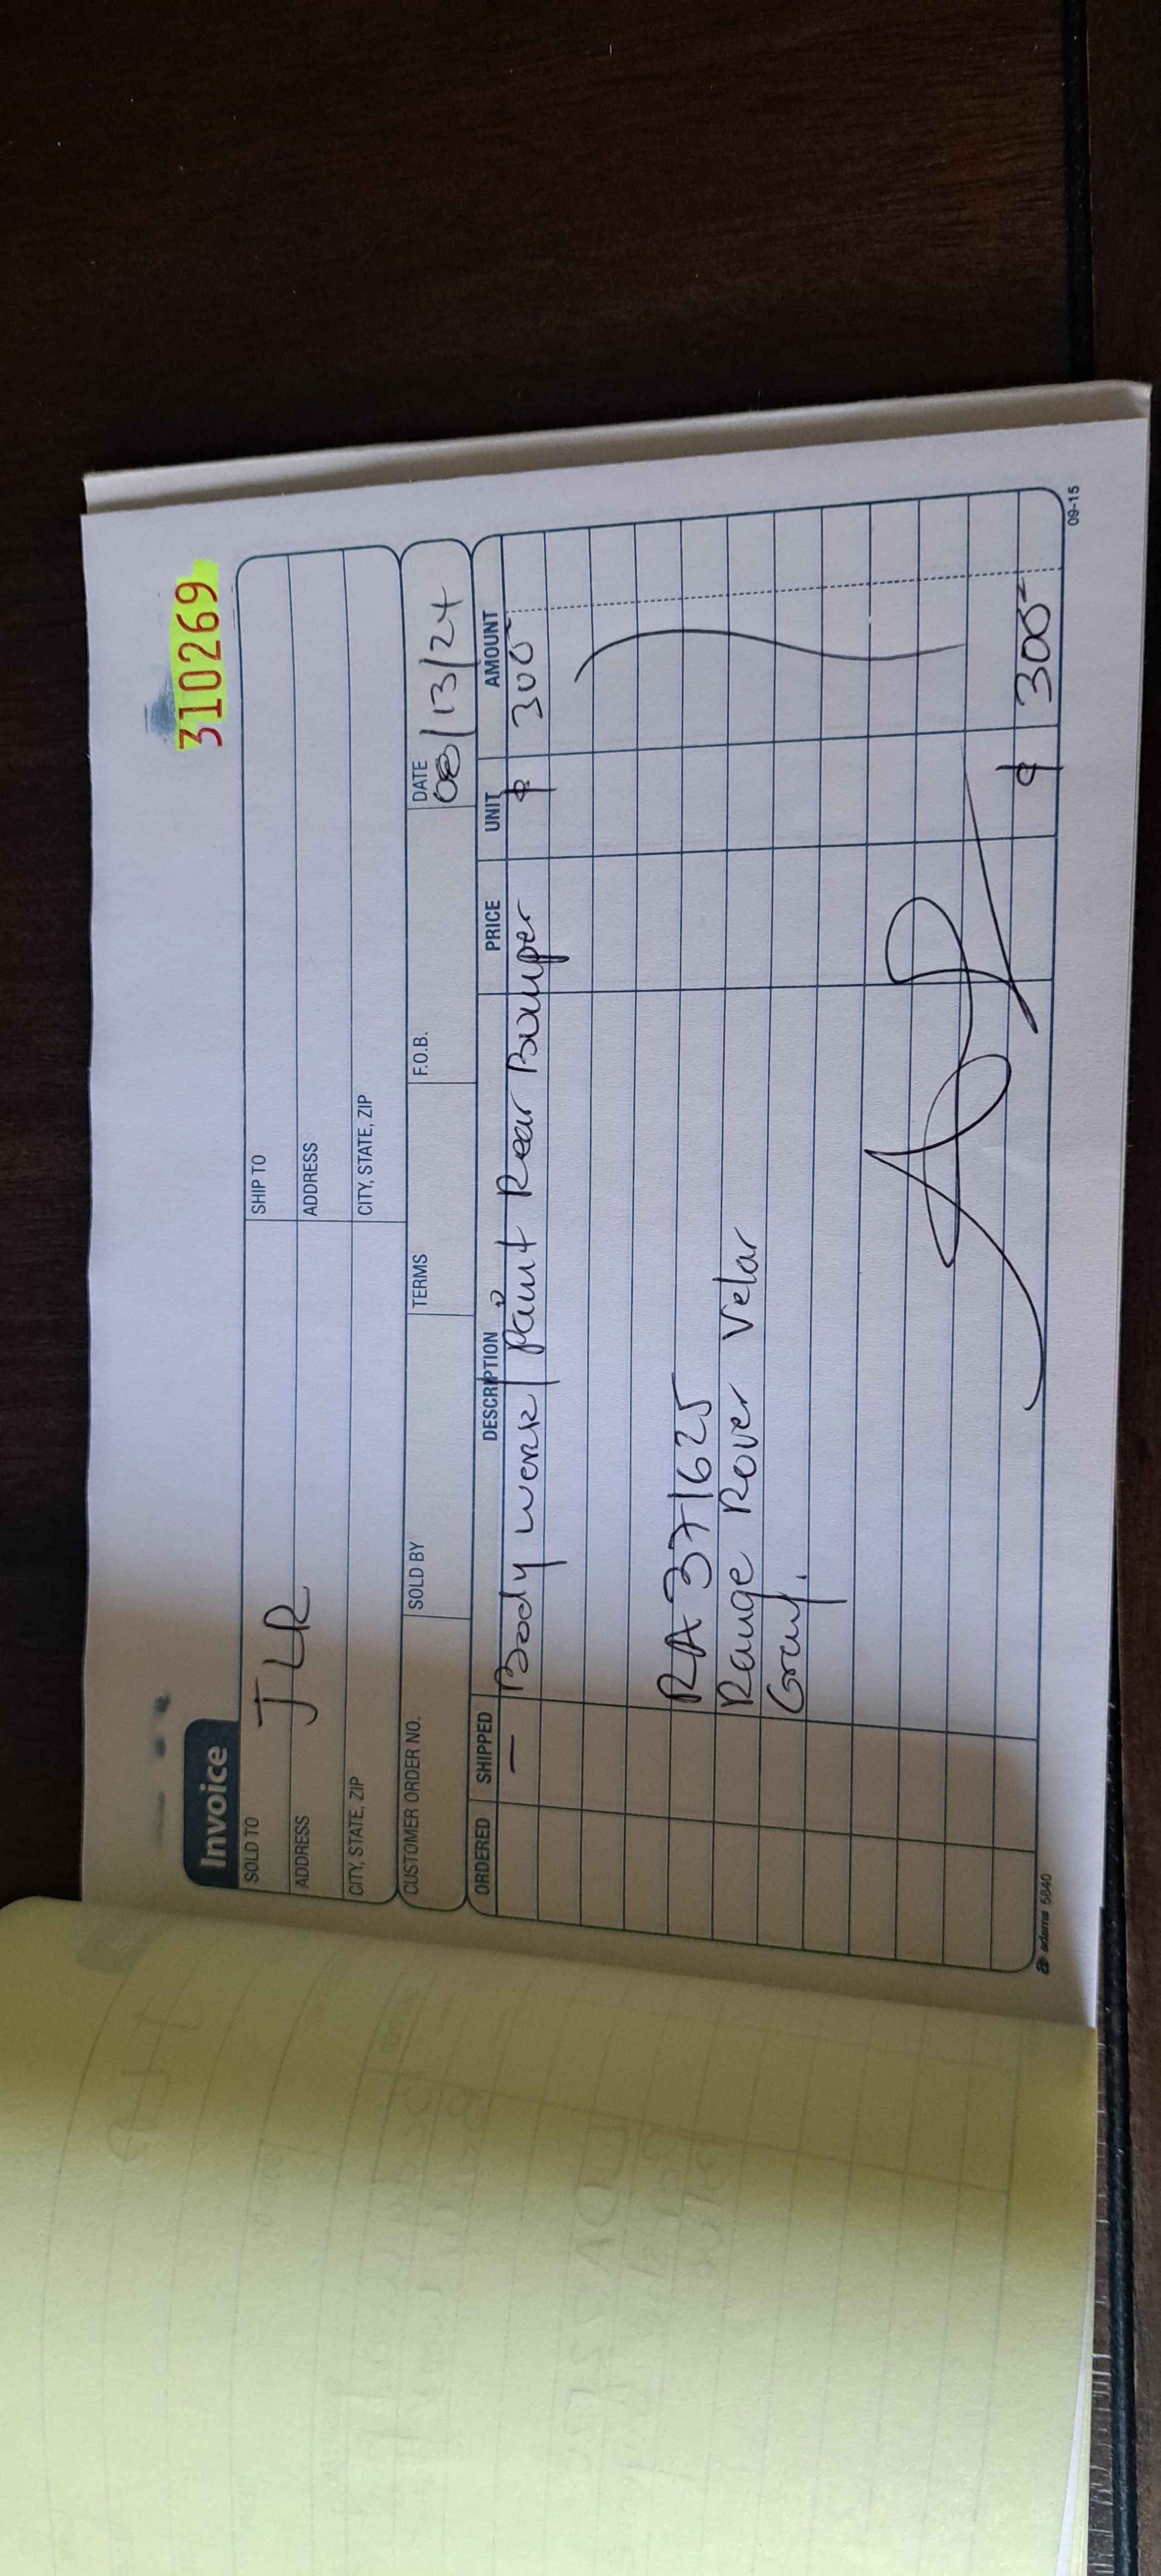 310269
Invoice
SOLD TO JLR SHIP TO
ADDRESS ADDRESS
CITY, STATE, ZIP CITY, STATE, ZIP
CUSTOMER ORDER NO. SOLD BY TERMS F.O.B. DATE
08/13/24
ORDERED SHIPPED DESCRIPTION PRICE UNIT AMOUNT
— Body work/Paint Rear Bumper $ 300-
RA 371625
Range Rover Velar
$ 300-
adams 5840 09-15